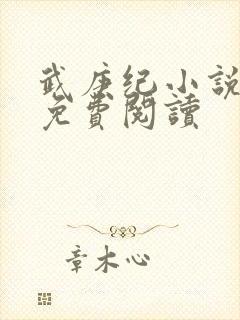 武庚纪小說
免費閱讀
章木心